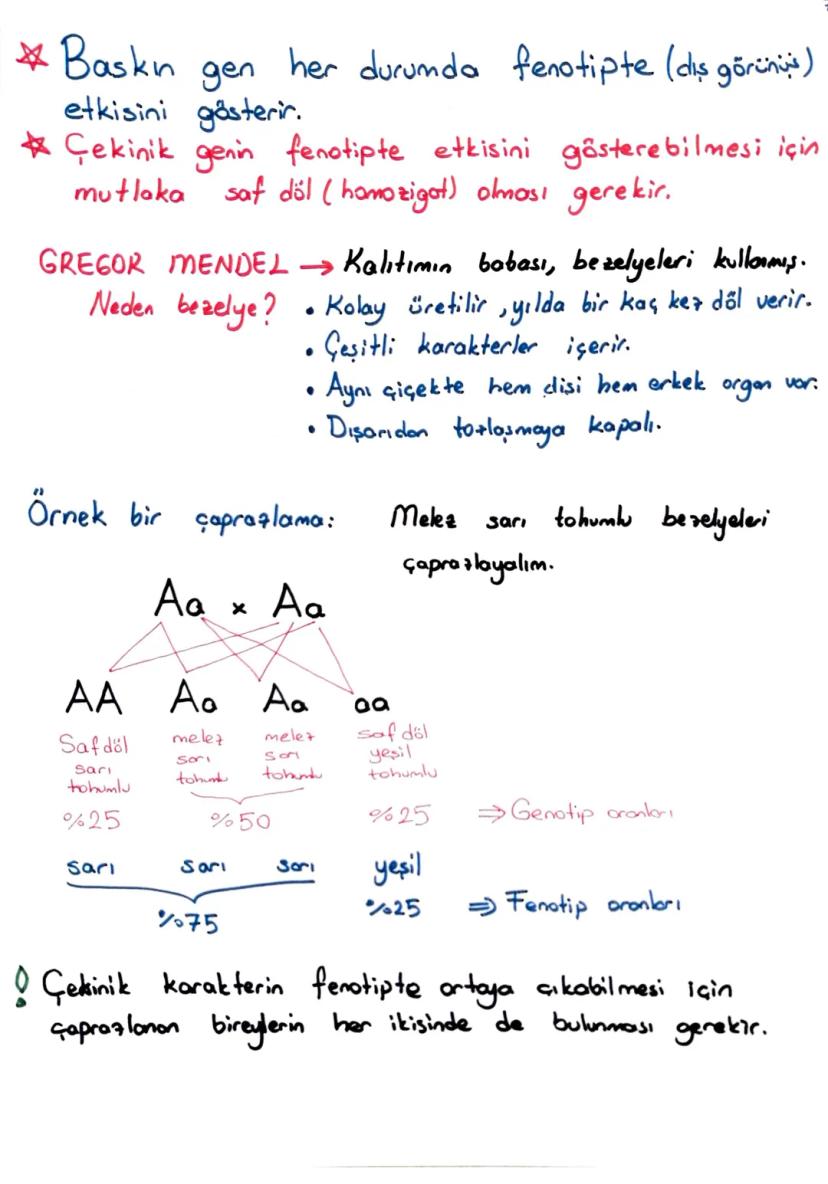 ☆ Baskın gen her durumda fenotipte (dış görünüş)
etkisini gösterir.
☆ Çekinik genin fenotipte etkisini gösterebilmesi için
mutlaka saf döl (homozigot) olması gerekir.
GREGOR MENDEL → Kalıtımın babası, bezelyeleri kullanmış.
Neden bezelye? • Kolay üretilir, yılda bir kaç kez döl verir.
• Çeşitli karakterler içerir.
• Aynı çiçekte hem dişi hem erkek organ var.
• Dışarıdan tozlaşmaya kapalı.
Örnek bir çaprazlama: Melez sarı tohumlu bezelyeleri
çaprazlayalım.
Aa x Aa
AA Aa Aa aa
Saf döl melez melez saf döl
sarı sarı sarı yeşil
tohumlu tohumlu tohumlu tohumlu
%25 %50 %25 ⇒ Genotip oranları
sarı sarı sarı yeşil
%75 %25 ⇒ Fenotip oranları
! Çekinik karakterin fenotipte ortaya çıkabilmesi için
çaprazlanan bireylerin her ikisinde de bulunması gerekir.